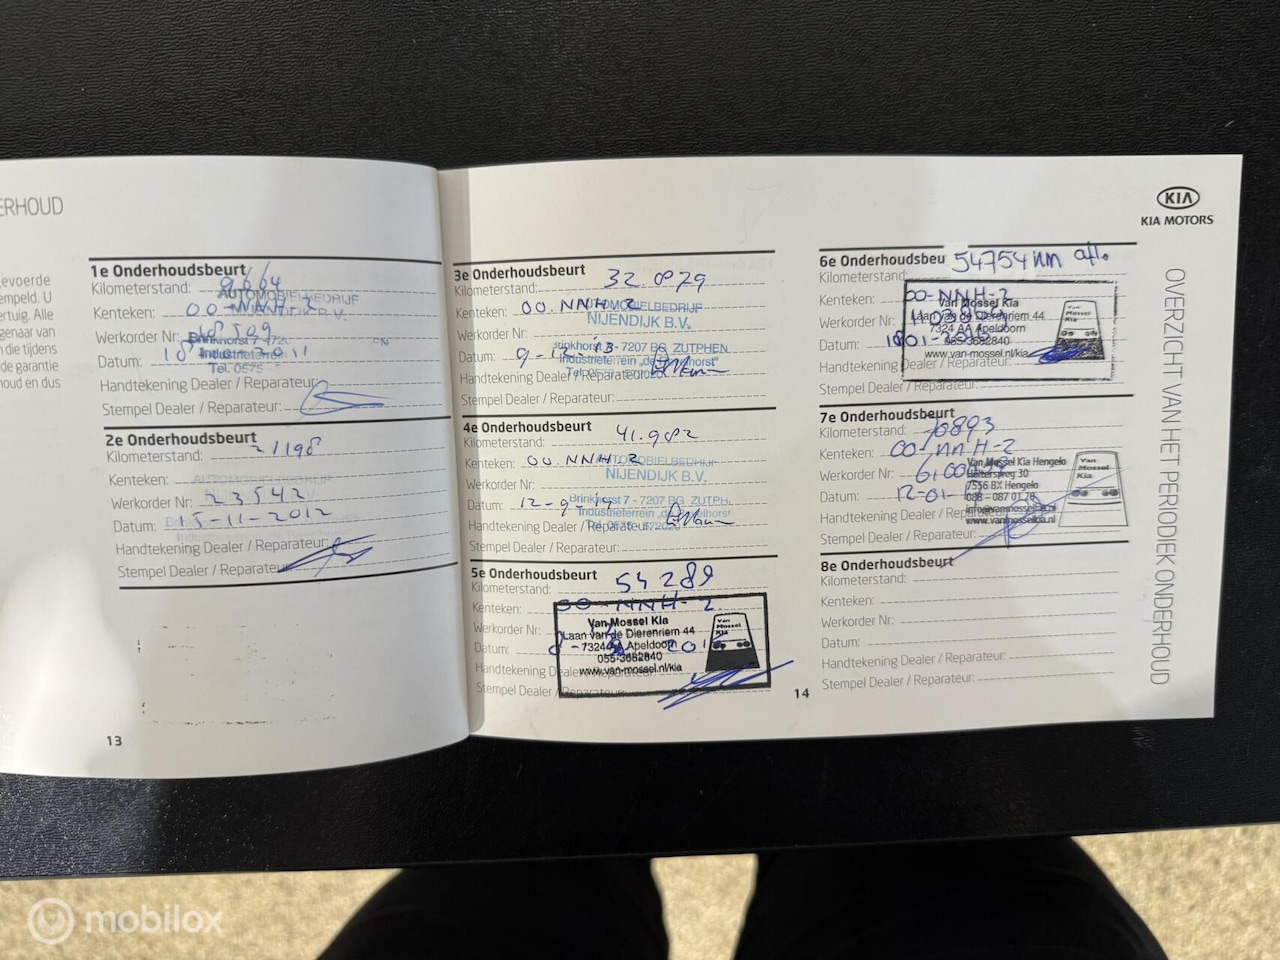 ERHOUD
evoerde
empeld. U
ertuig. Alle
genaar van
n die tijdens
de garantie
houd en dus
1e Onderhoudsbeurt
Kilometerstand: 9664
AUTOMOBIELBEDRIJF
Kenteken: 00-NNH-2
Werkorder Nr: 18509
Datum:
Industrieterrein
Tel. 0575
Handtekening Dealer / Reparateur:
Stempel Dealer / Reparateur:
2e Onderhoudsbeurt
Kilometerstand: 21198
Kenteken:
AUTOMOBIELBEDRIJF
Werkorder Nr: 23542
Datum: 15-11-2012
Handtekening Dealer / Reparateur:
Stempel Dealer / Reparateur:
13
3e Onderhoudsbeurt
Kilometerstand: 32.079
Kenteken: 00.NNH-2
AUTOMOBIELBEDRIJF
NIJENDIJK B.V.
Werkorder Nr:
Brinkhorst 7 - 7207 BG ZUTPHEN
Datum: 9-12-13
Industrieterrein
Handtekening Dealer / Reparateur:
Stempel Dealer / Reparateur:
4e Onderhoudsbeurt
Kilometerstand: 41.982
Kenteken: 00.NNH-2
AUTOMOBIELBEDRIJF
NIJENDIJK B.V.
Werkorder Nr:
Brinkhorst 7 - 7207 BG ZUTPH
Datum: 12-9-14
Industrieterrein
Handtekening Dealer / Reparateur:
Stempel Dealer / Reparateur:
5e Onderhoudsbeurt
Kilometerstand: 54289
Kenteken: 00-NNH-2
Werkorder Nr:
Van Mossel Kia
Laan van de Dierenriem 44
Datum:
7324 AA Apeldoorn
055-3682840
www.van-mossel.nl/kia
Van
Mossel
Kia
Handtekening Dealer / Reparateur:
Stempel Dealer / Reparateur:
14
KIA
KIA MOTORS
6e Onderhoudsbeu
Kilometerstand: 54754 km afl.
Kenteken: 00-NNH-2
Van Mossel Kia
Werkorder Nr:
Laan van de Dierenriem 44
7324 AA Apeldoorn
Datum:
055-3682840
www.van-mossel.nl/kia
Van
Mossel
Kia
Handtekening Dealer / Reparateur:
Stempel Dealer / Reparateur:
7e Onderhoudsbeurt
Kilometerstand: 70893
Kenteken: 00-NNH-2
Werkorder Nr:
Van Mossel Kia Hengelo
30
Datum: 12-01-
7556 BX Hengelo
088 - 087 01 20
info@vanmosselkia.nl
www.vanmosselkia.nl
Van
Mossel
Kia
Handtekening Dealer / Reparateur:
Stempel Dealer / Reparateur:
8e Onderhoudsbeurt
Kilometerstand:
Kenteken:
Werkorder Nr:
Datum:
Handtekening Dealer / Reparateur:
Stempel Dealer / Reparateur:
OVERZICHT VAN HET PERIODIEK ONDERHOUD
mobilox